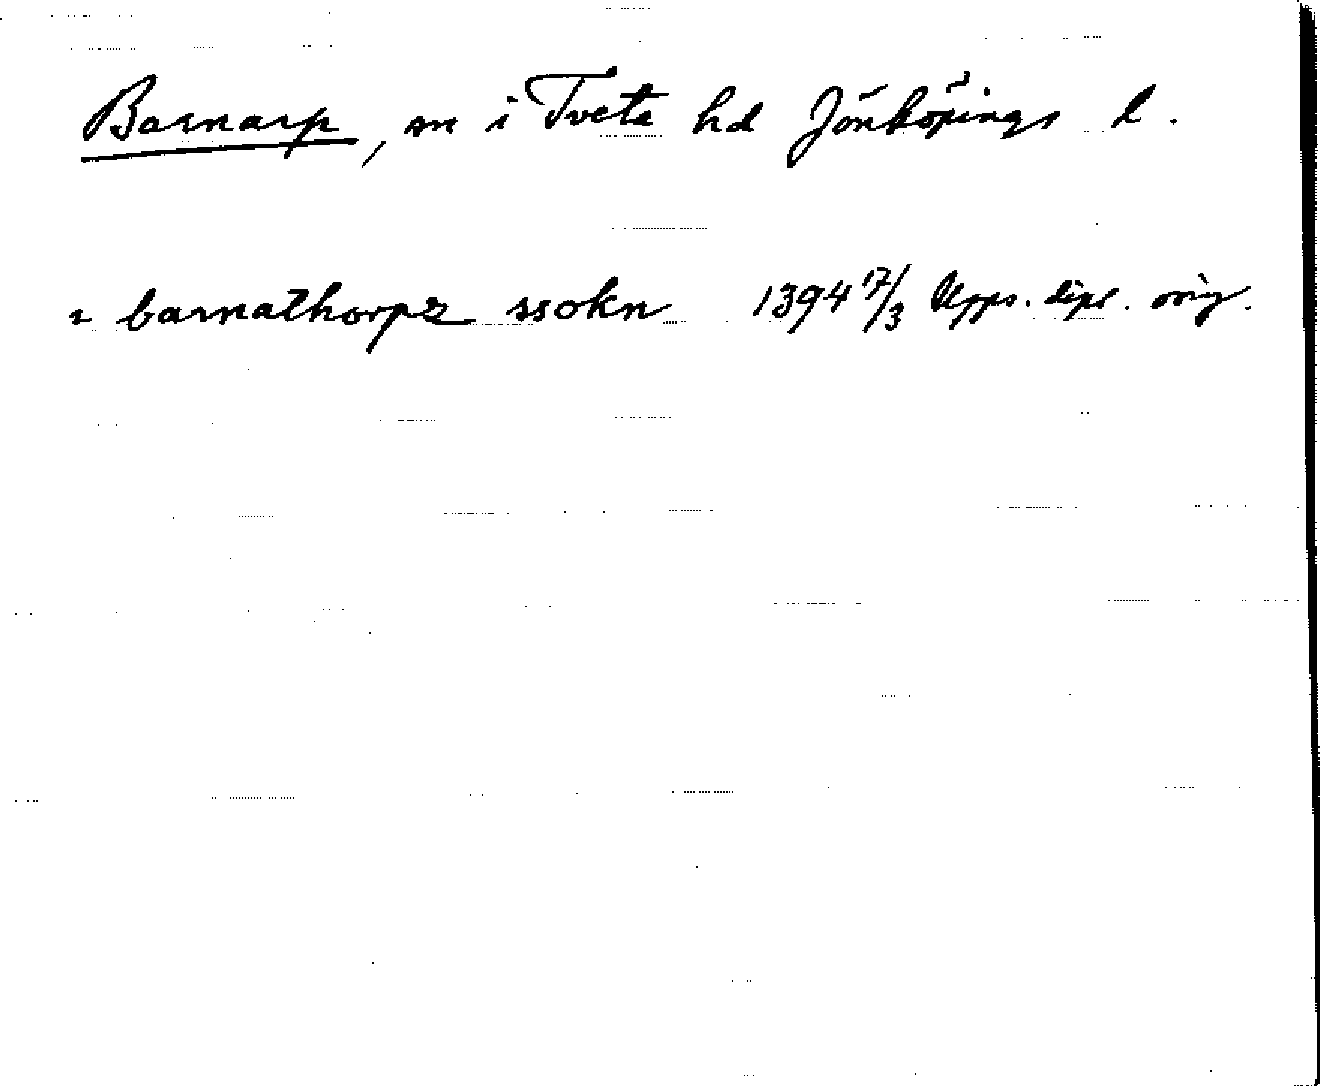 Barnarp, sn i Tveta hd Jönköpings l.
i barnathorpz ssokn 1394 17/3 Upps. dipl. orig.